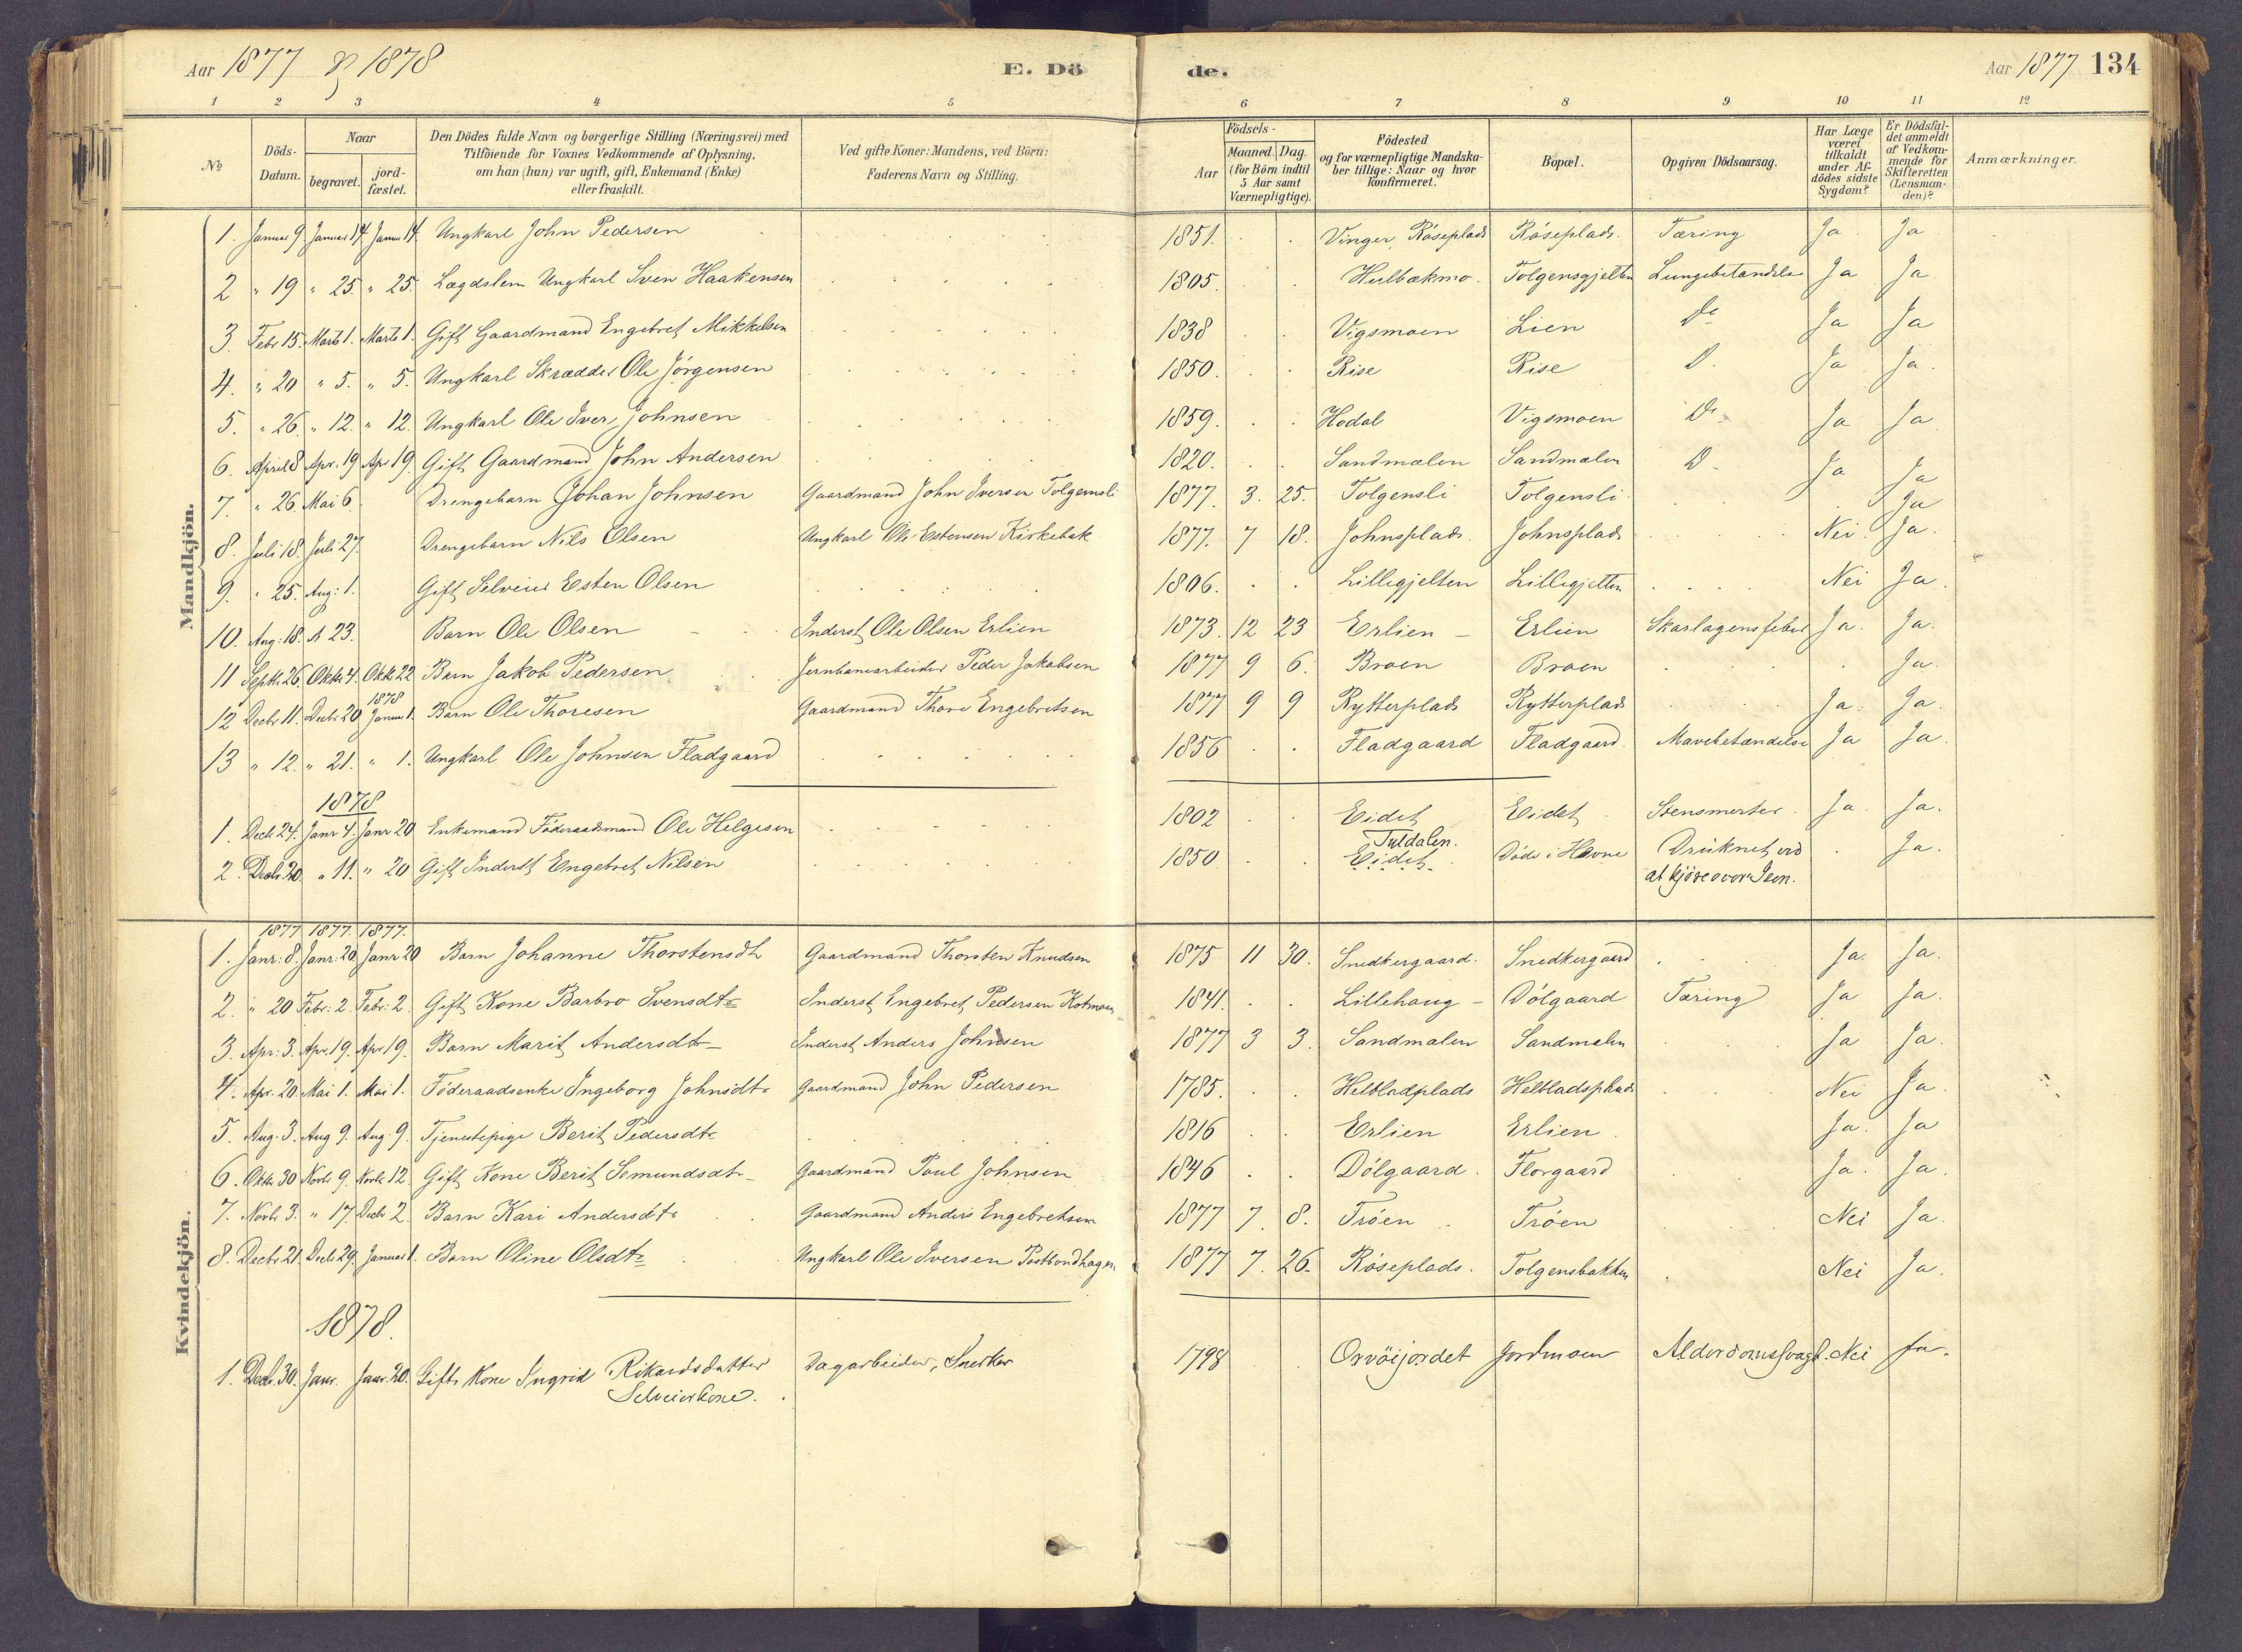 Aar 1877 & 1878 E. Dö de. Aar 1877 134
1 2 3 4 5 6 7 8 9 10 11 12
No. Döds-Datum. Naar begravet. jordfæstet. Den Dödes fulde Navn og borgerlige Stilling (Næringsvei) med Tilföiende for Voxnes Vedkommende af Oplysning, om han (hun) var ugift, gift, Enkemand (Enke) eller fraskilt. Ved gifte Koner: Mandens, ved Börn: Faderens Navn og Stilling. Födsels- Aar Maaned. Dag. (for Börn indtil 5 Aar samt Værnepligtige). Födested og for værnepligtige Mandskaber tillige: Naar og hvor konfirmeret. Bopæl. Opgiven Dödsaarsag. Har Læge været tilkaldt under Afdödes sidste Sygdom? Er Dödsfaldet anmeldt af Vedkommende for Skifteretten (Lensmanden)? Anmærkninger.
Mandkjön.
1. Januar 9 Januar 14 Januar 14 Ungkarl John Pedersen 1851. Vinger, Röseplads Röseplads. Tæring Ja Ja
2 " 19 " 25. " 25. Lægdslem Ungkarl Sven Haakensen 1805. Hulbækmo. Tolgensgjelten Lungebetændelse Ja Ja
3. Febr 15. Marts 1. Marts 1. Gift Gaardmand Engebret Mikkelsen 1838 Vigsmoen Lien Do Ja Ja
4. " 20 " 5. " 5. Ungkarl Skrædder Ole Jörgensen 1850. Rise Rise D. Ja Ja.
5. " 26. " 12. " 12. Ungkarl Ole Iver Johnsen 1859. Hodal Vigsmoen Do Ja Ja
6. April 8 Apr. 19 Apr 19. Gift Gaardmand John Andersen 1820. Sandmælen Sandmælen D. Ja Ja
7. " 26. Mai 6. Drengebarn Johan Johnsen Gaardmand John Iversen Tolgensli 1877. 3. 25. Tolgensli Tolgensli. Ja
8. Juli 18. Juli 27. Drengebarn Nils Olsen Ungkarl Ole Estensen Kirkebak 1877. 7 18. Johnsplads. Johnsplads Nei. Ja.
9. " 25. Aug: 1. Gift Selveier Esten Olsen 1806. Lilligjelten Lilligjelten Nei Ja.
10. Aug: 18. A 23. Barn Ole Olsen Inderst Ole Olsen Erlien 1873. 12 23 Erlien Erlien Skarlagensfeber Ja. Ja.
11 Septr. 26. Oktr. 4. Oktr. 22 Barn Jakob Pedersen Jernbanearbeider Peder Jakobsen 1877 9 6. Broen Broen Ja.
12 Decbr 11. Decbr 20 1878 Januar 1. Barn Ole Thoresen Gaardmand Thore Engebretsen 1877 9 9 Rytterplads Rytterplads Ja. Ja.
13 " 12. " 21. " 1. Ungkarl Ole Johnsen Fladgaard 1856 Fladgaard Fladgaard. Mavebetændelse Ja Ja.
1878
1. Decb 24. Janr 4. Janr 20 Enkemand Föderaadsmand Ole Helgesen 1802 Eidet Eidet Stensmerter. Ja Ja.
2. Decbr. 20. " 11. " 20 Gift Inderst Engebret Nilsen 1850 Tuldalen. Eidet Döde i Havne Druknet ved at kjöre over Isen. Ja.
Kvindekjön.
1877 1877. 1877.
1. Janr: 8. Janr: 20. Janr 20 Barn Johanne Thorstensdtr Gaardmand Thorsten Knudsen 1875 11 30. Snedkergaard. Snedkergaard Ja. Ja.
2. " 20 Febr: 2. Febr: 2. Gift Kone Barbro Svensdtr Inderst Engebret Pedersen Kotmoen 1841. Lillehaug Dölgaard Tæring Ja Ja.
3. Apr: 3. Apr. 19. Apr 19. Barn Marit Andersdtr Inderst Anders Johnsen 1877 3 3. Sandmælen Sandmælen Ja Ja.
4. Apr. 20. Mai 1. Mai 1. Föderaadsenke Ingeborg Johnsdtr Gaardmand John Pedersen 1785. Helbladplads Helbladsplads Nei Ja.
5. Aug. 3. Aug 9. Aug. 9. Tjenestepige Berit Pedersdtr 1816 Erlien Erlien. Ja. Ja
6. Oktr 30 Novbr 9. Novbr 12. Gift Kone Berit Semundsdtr Gaardmand Poul Johnsen 1846 Dölgaard. Florgaard Ja. Ja.
7. Novbr 3. " 17. Decbr 2. Barn Kari Andersdtr Gaardmand Anders Engebretsen 1877 7. 8. Tröen Tröen Nei Ja.
8. Decbr 21. Decbr 29. Januar 1. Barn Oline Olsdtr Ungkarl Ole Iversen 1877 7. 26. Röseplads. Tolgensbakken Nei Ja.
1878.
1. Decbr. 30. Janr. Janr. 20. Gift Kone Ingrid Rikardsdatter Selveierkone. Dagarbeider, Snerker 1798 Orvöijordet Jordmoen Alderdomssvagh. Nei Ja.